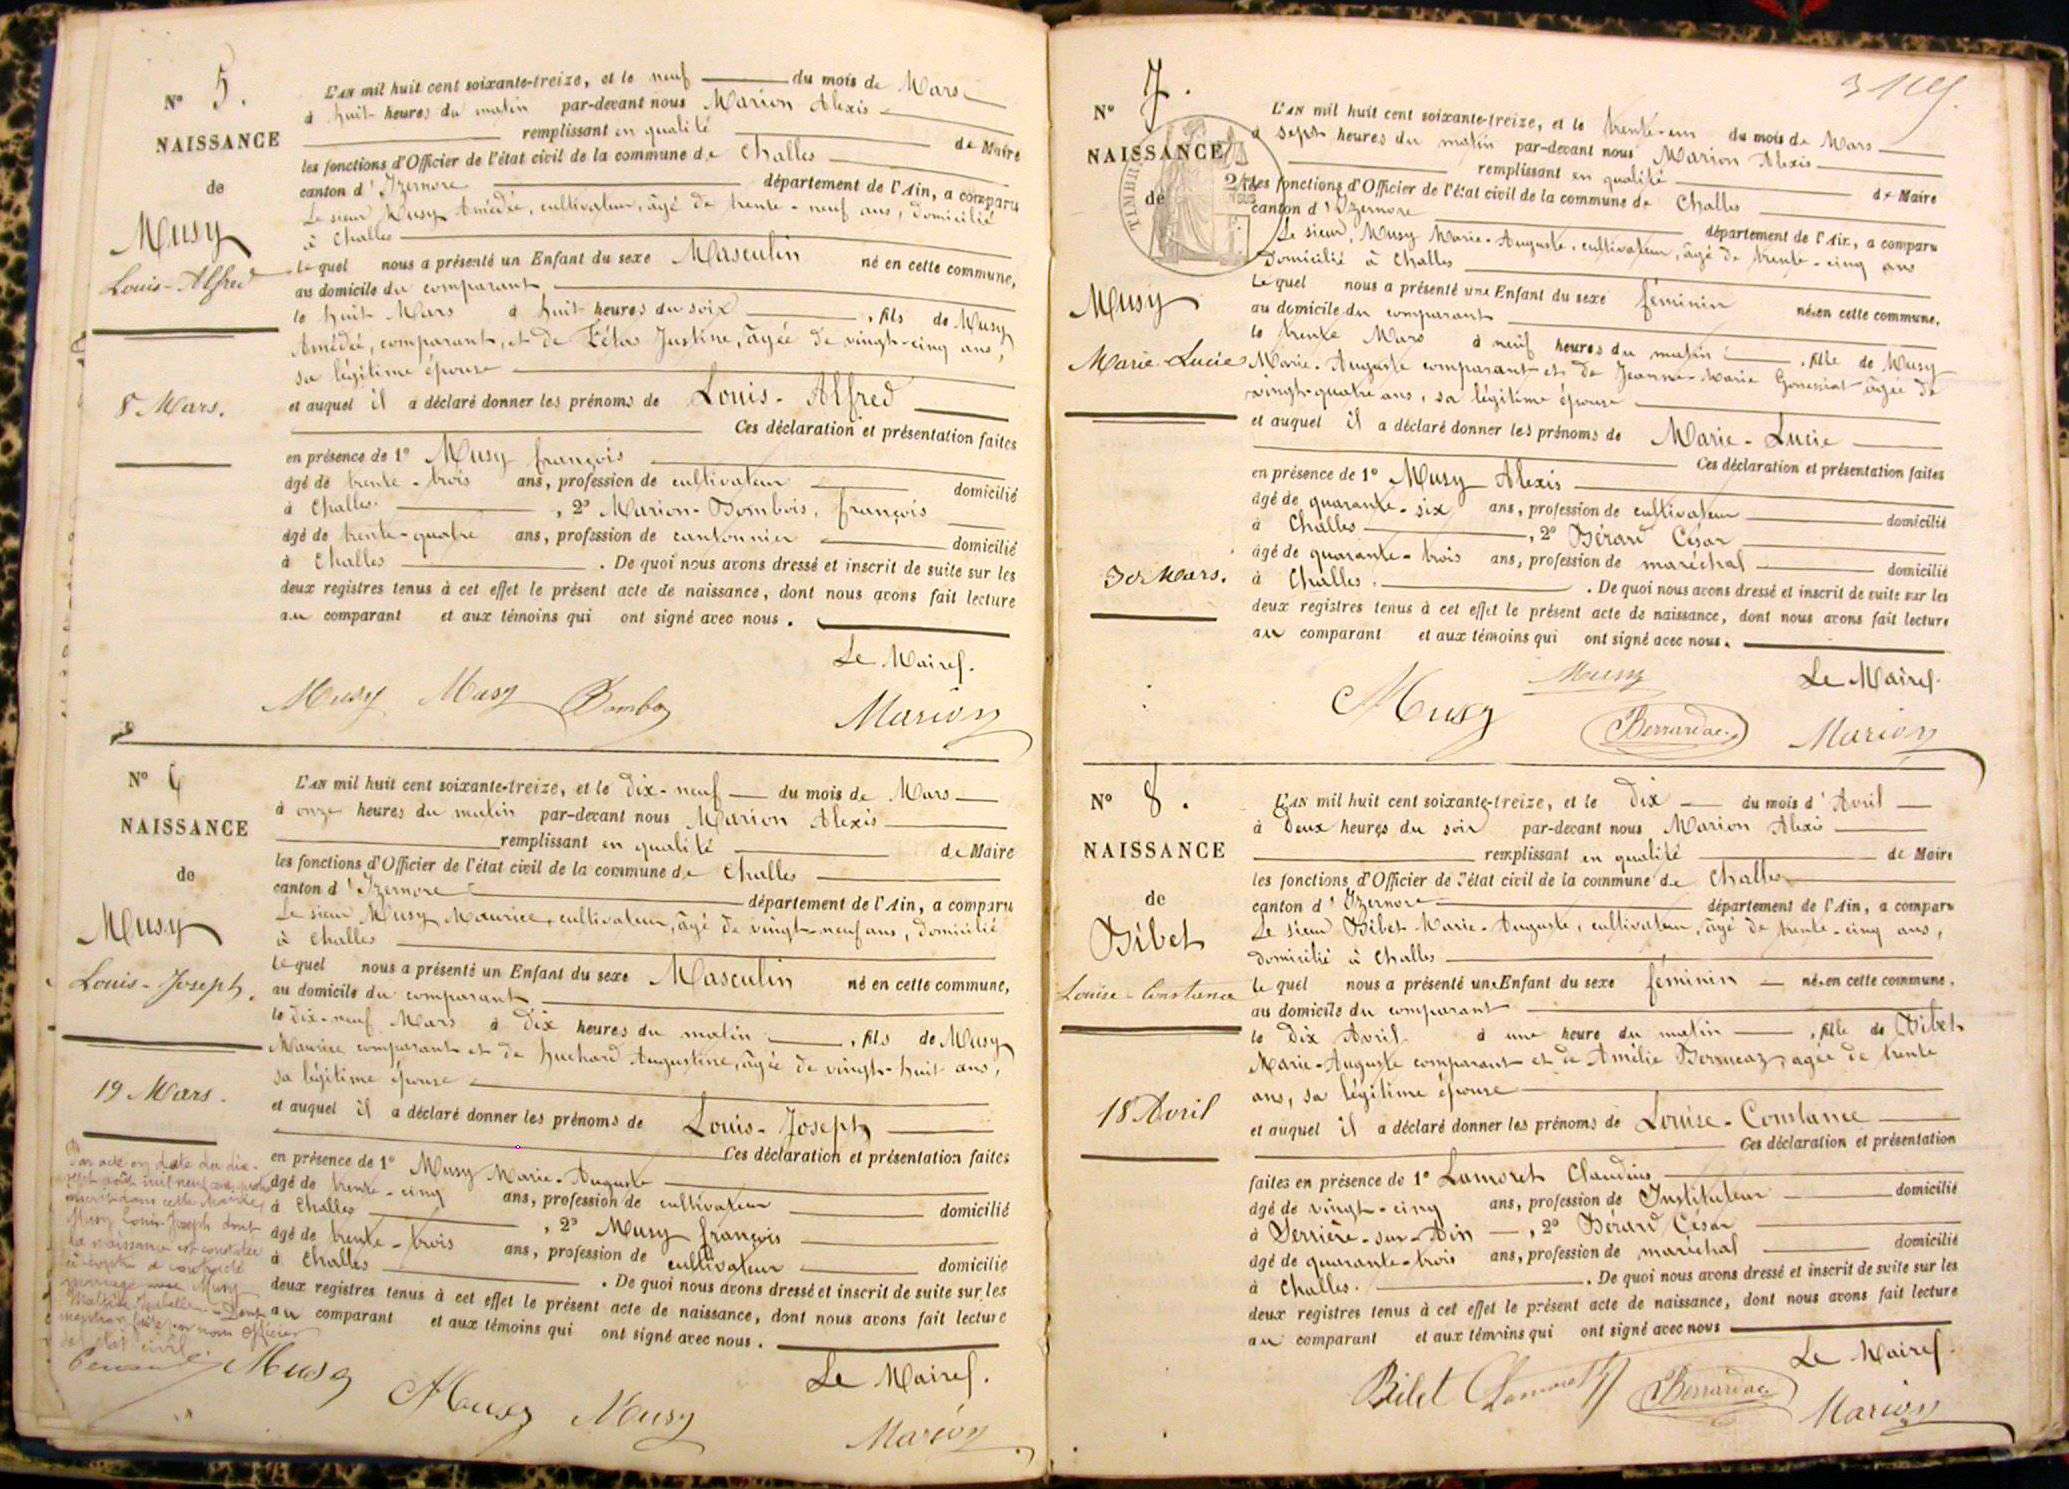 N° 5.
NAISSANCE
de
Musy
Louis-Alfred
8 Mars.
L'AN mil huit cent soixante-treize, et le neuf du mois de Mars
à huit heures du matin par-devant nous Marion Alexis
remplissant en qualité de Maire
les fonctions d'Officier de l'état civil de la commune de Challes
canton d'Izernore département de l'Ain, a comparu
Le sieur Musy Amédée, cultivateur, âgé de trente-neuf ans, domicilié
à Challes
lequel nous a présenté un Enfant du sexe Masculin né en cette commune,
au domicile du comparant
le huit Mars à huit heures du soir, fils de Musy
Amédée, comparant, et de Justine, âgée de vingt-cinq ans,
sa légitime épouse
et auquel il a déclaré donner les prénoms de Louis-Alfred
Ces déclaration et présentation faites
en présence de 1° Musy françois
âgé de trente-trois ans, profession de cultivateur domicilié
à Challes, 2° Marion-Bombois, françois
âgé de trente-quatre ans, profession de cantonnier domicilié
à Challes. De quoi nous avons dressé et inscrit de suite sur les
deux registres tenus à cet effet le présent acte de naissance, dont nous avons fait lecture
au comparant et aux témoins qui ont signé avec nous.
Le Maire.
Musy Musy Marion
N°
NAISSANCE
de
Musy
Louis-Joseph.
19 Mars.
L'AN mil huit cent soixante-treize, et le dix-neuf du mois de Mars
à onze heures du matin par-devant nous Marion Alexis
remplissant en qualité de Maire
les fonctions d'Officier de l'état civil de la commune de Challes
canton d'Izernore département de l'Ain, a comparu
Le sieur Musy Maurice, cultivateur, âgé de vingt-neuf ans, domicilié
à Challes
lequel nous a présenté un Enfant du sexe Masculin né en cette commune,
au domicile du comparant
le dix-neuf Mars à dix heures du matin, fils de Musy
Maurice comparant et de huchard Augustine, âgée de vingt-huit ans,
sa légitime épouse
et auquel il a déclaré donner les prénoms de Louis-Joseph
Ces déclaration et présentation faites
en présence de 1° Musy Marie-Auguste
âgé de trente-cinq ans, profession de cultivateur domicilié
à Challes, 2° Musy françois
âgé de trente-trois ans, profession de cultivateur domicilié
à Challes. De quoi nous avons dressé et inscrit de suite sur les
deux registres tenus à cet effet le présent acte de naissance, dont nous avons fait lecture
au comparant et aux témoins qui ont signé avec nous.
Par acte en date du dix-
sept août mil neuf cent
inscrit dans cette Mairie,
Musy Louis Joseph dont
la naissance est constatée
ci-contre a contracté
mariage avec Musy
Dont
mention faite par nous officier
de l'état civil.
Le Maire.
Musy Musy Musy
Marion
N° 7.
NAISSANCE
de
Musy
Marie-Lucie
30 Mars.
TIMBRE
L'AN mil huit cent soixante-treize, et le trente-un du mois de Mars
à sept heures du matin par-devant nous Marion Alexis
remplissant en qualité de Maire
les fonctions d'Officier de l'état civil de la commune de Challes
canton d'Izernore département de l'Ain, a comparu
Le sieur, Musy Marie-Auguste, cultivateur, âgé de trente-cinq ans
Domicilié à Challes
lequel nous a présenté une Enfant du sexe féminin née en cette commune,
au domicile du comparant
le trente Mars à neuf heures du matin, fille de Musy
Marie-Auguste comparant et de Jeanne-Marie Gonessiat âgée de
vingt-quatre ans, sa légitime épouse
et auquel il a déclaré donner les prénoms de Marie-Lucie
Ces déclaration et présentation faites
en présence de 1° Musy Alexis
âgé de quarante-six ans, profession de cultivateur domicilié
à Challes, 2° Bérard César
âgé de quarante-trois ans, profession de maréchal domicilié
à Challes. De quoi nous avons dressé et inscrit de suite sur les
deux registres tenus à cet effet le présent acte de naissance, dont nous avons fait lecture
au comparant et aux témoins qui ont signé avec nous.
Le Maire.
Musy Musy Marion
N° 8.
NAISSANCE
de
Bibet
Louise-Constance
18 Avril
L'AN mil huit cent soixante-treize, et le dix du mois d'Avril
à Deux heures du soir par-devant nous Marion Alexis
remplissant en qualité de Maire
les fonctions d'Officier de l'état civil de la commune de Challes
canton d'Izernore département de l'Ain, a comparu
Le sieur Bibet Marie-Auguste, cultivateur, âgé de trente-cinq ans,
domicilié à Challes
lequel nous a présenté une Enfant du sexe féminin née en cette commune,
au domicile du comparant
le Dix Avril à une heure du matin, fille de Bibet
Marie-Auguste comparant et de Amélie âgée de trente
ans, sa légitime épouse
et auquel il a déclaré donner les prénoms de Louise-Constance
Ces déclaration et présentation
faites en présence de 1° Lamoret Claudius
âgé de vingt-cinq ans, profession de Instituteur domicilié
à Serrière-sur-Ain, 2° Bérard César
âgé de quarante-trois ans, profession de maréchal domicilié
à Challes. De quoi nous avons dressé et inscrit de suite sur les
deux registres tenus à cet effet le présent acte de naissance, dont nous avons fait lecture
au comparant et aux témoins qui ont signé avec nous
Le Maire.
Bibet Lamoret Marion